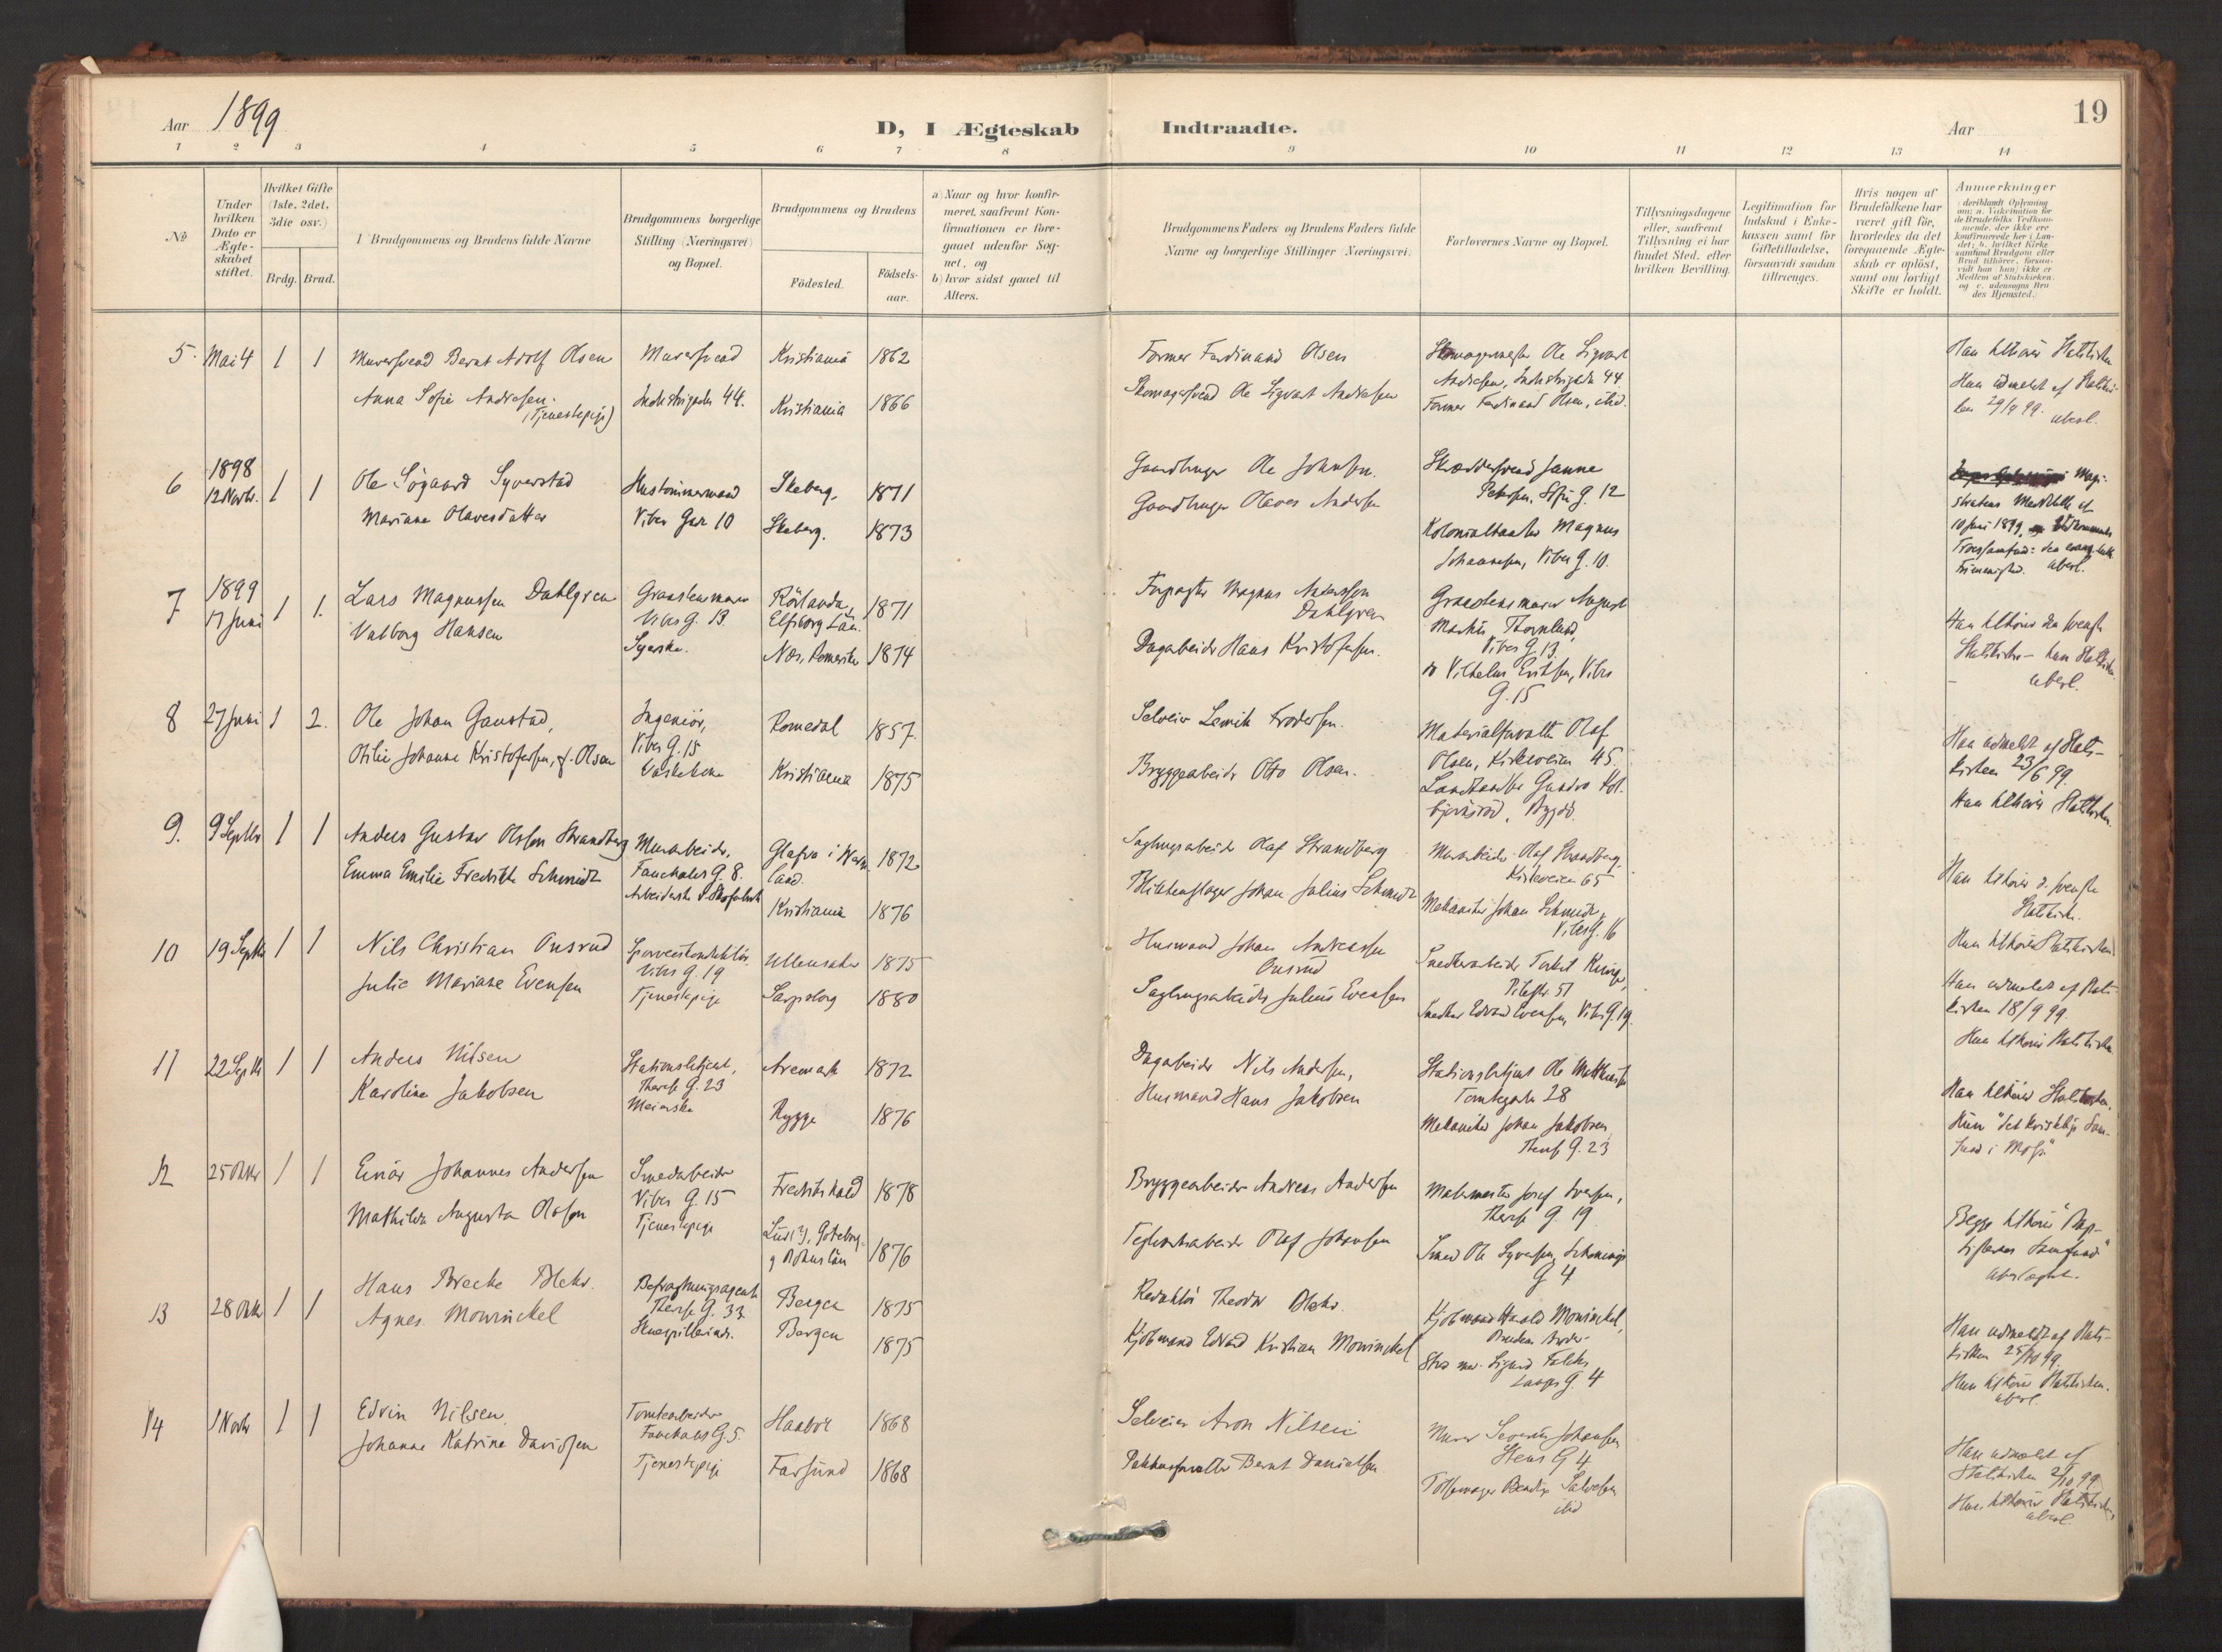 Aar 1899
D, I Ægteskab Indtraadte.
Aar
19
1 2 3 4 5 6 7 8 9 10 11 12 13 14
No
Under hvilken Dato er Ægteskabet stiftet.
Hvilket Gifte (1ste, 2det, 3die osv.)
Brdg. Brud.
Brudgommens og Brudens fulde Navne
Brudgommens borgerlige Stilling (Næringsvei) og Bopæl.
Brudgommens og Brudens
Födested.
Födselsaar.
a) Naar og hvor konfirmeret, saafremt Konfirmationen er foregaaet udenfor Sognet, og
b) hvor sidst gaaet til Alters.
Brudgommens Faders og Brudens Faders fulde Navne og borgerlige Stillinger (Næringsvei)
Forlovernes Navne og Bopæl.
Tillysningsdagene eller, saafremt Tillysning ei har fundet Sted, efter hvilken Bevilling.
Legitimation for Indskud i Enkekassen samt for Giftetilladelse, forsaavidt saadan tiltrænges.
Hvis nogen af Brudefolkene har været gift för, hvorledes da det foregaaende Ægteskab er oplöst, samt om lovligt Skifte er holdt.
Anmærkninger
5. Mai 4 1 1
Murersvend Bernt Adolf Olsen
Anna Sofie Andresen.
(Tjenestepige)
Murersvend
Industrigaden 44.
Kristiania 1862
Kristiania 1866
Former Ferdinand Olsen
Skomagersvend Ole Sigvart Andresen
Skomagermester Ole Sigvart
Andresen, Industrigaden 44.
Former Ferdinand Olsen, ibid.
Han tilhører Statskirken
Hun udmeldt af Statskir-
ken
6 1898
12 Novbr. 1 1
Ole Sögaard Syverstad
Mariane Olavesdatter
Hustömmermand
Vibes Gade 10
Skeberg. 1871
Skeberg. 1873
Gaardbruger Ole Johnsen.
Gaardbruger Olaves Andersen
Skrædersvend Janne
Petersen. Sofies G. 12
Kolonialhandler Magnus
Johannesen, Vibes G. 10.
Magi-
stratens Meddelelse af
10 Juni 1899,
Frimenighed.
7 1899
17 Juni 1 1.
Lars Magnussen Dahlgren
Valborg Hansen
Graastensmurer
Vibes G. 13.
Syerske.
Elfsborg Län. 1871
Næs, Romerike 1874
Forpagter Magnus Andersson
Dahlgren
Dagarbeider Hans Kristofersen.
Graastensmurer August
Thornlund,
Vibes G. 13.
Vilhelm Eriksen, Vibes
G. 15
Han tilhører den svenske
Statskirke – hun Statskirken
8 27 Juni 1 2.
Ole Johan Gaustad,
Otilie Johanne Kristofersen, f. Olsen
Ingeniör,
Vibes G. 15
Vaskekone
Romedal 1857.
Kristiania 1875
Selveier
Bryggearbeider Otto Olsen.
Materialforvalter Olaf
Olsen, Kirkeveien 45.
Han udmeldt af Stats-
kirken 23/6 99.
Hun tilhører Statskirken.
9. 9 Septbr 1 1
Anders Gustav Olsson Strandberg
Emma Emilie Fredrikke Schmidt
Murarbeider,
Fauchalds G. 8.
Glafva i Werm-
land. 1872
Kristiania 1876
Sagbrugsarbeider Olaf Strandberg
Johan Julius Schmidt
Murarbeider Olaf Strandberg,
Kirkeveien 65
Mekaniker Johan Schmidt,
Vibes G. 16
Han tilhører d. svenske
Statskirke.
Hun tilhører Statskirken
10 19 Septbr 1 1
Nils Christian Onsrud
Julie Mariane Evensen
Sporveiskonduktör.
Vibes G. 19
Tjenestepige
Ullensaker 1875
Sarpsborg 1880
Husmand Johan Andreassen
Onsrud
Sagbrugsarbeider Julius Evensen
Snedkerarbeider
Pilestr. 51
Snedker Edvard Evensen, Vibes G. 19.
Han udmeldt af Stats-
kirken 18/9 99.
Hun tilhører Statskirken
11 22 Septbr 1 1
Anders Nilsen
Karoline Jakobsen
Stationsbetjent,
Therese G. 23
Meierske
Aremark 1872
Rygge 1876
Dagarbeider Nils Andersen,
Husmand Hans Jakobsen
Stationsbetjent Ole
Tomtegaden 28
Mekaniker Johan Jakobsen,
Therese G. 23
Han tilhører Statskirken.
Hun "det kristelige Sam-
fund i Moss."
12 25 Oktbr 1 1
Einar Johannes Andersen
Mathilda Augusta Olsson
Smedarbeider
Vibes G. 15
Tjenestepige
Fredrikshald 1878
Göteborg
og Bohuslän 1876
Bryggearbeider Andreas Andersen
Teglverksarbeider Olof Johansen
Malermester Josef Iversen,
Therese G. 19
Smed Ole Syversen, Schønings
G 4
Begge tilhører "Bap-
tisternes Samfund"
13 28 Oktbr 1 1
Hans Brecke Blehr.
Agnes Mowinckel
Befragtningsagent
Therese G. 33.
Skuespillerinde.
Bergen 1875
Bergen 1875
Redaktör Theodor Blehr.
Kjöbmand Edvard Kristian Mowinckel
Kjöbmand Harald Mowinckel,
Brudens Broder
Han udmeldt af Stats-
kirken 25/10 99.
Hun tilhører Statskirken.
14 1 Novbr 1 1
Edvin Nilsen.
Johanne Katrine Davidsen
Tomtearbeider
Fauchalds G. 5.
Tjenestepige
Haaböl 1868
Farsund 1868
Selveier Aron Nilsen
Pakhusforvalter Bernt Danielsen
Murer Severin Johansen
Stens G 4
ibid
Han udmeldt af
Statskirken 2/10 99
Hun tilhører Statskirken,